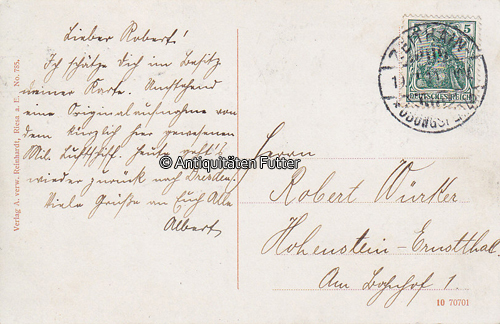 Lieber Robert!
Ich schätze Dich im Besitz
meiner Karte. Umstehend
eine Originalaufnahme von
dem kürzlich hier gewesenen
Mil. Luftschiff. Heute geht's
wieder zurück nach Dresden.
Viele Grüße an Euch Alle
Albert
Verlag A. verw. Reinhardt, Riesa a. E. No. 785.
© Antiquitäten Futter
5
DEUTSCHES REICH
Herrn
Robert Würker
Hohenstein-Ernstthal.
Am Bahnhof 1.
10 70701